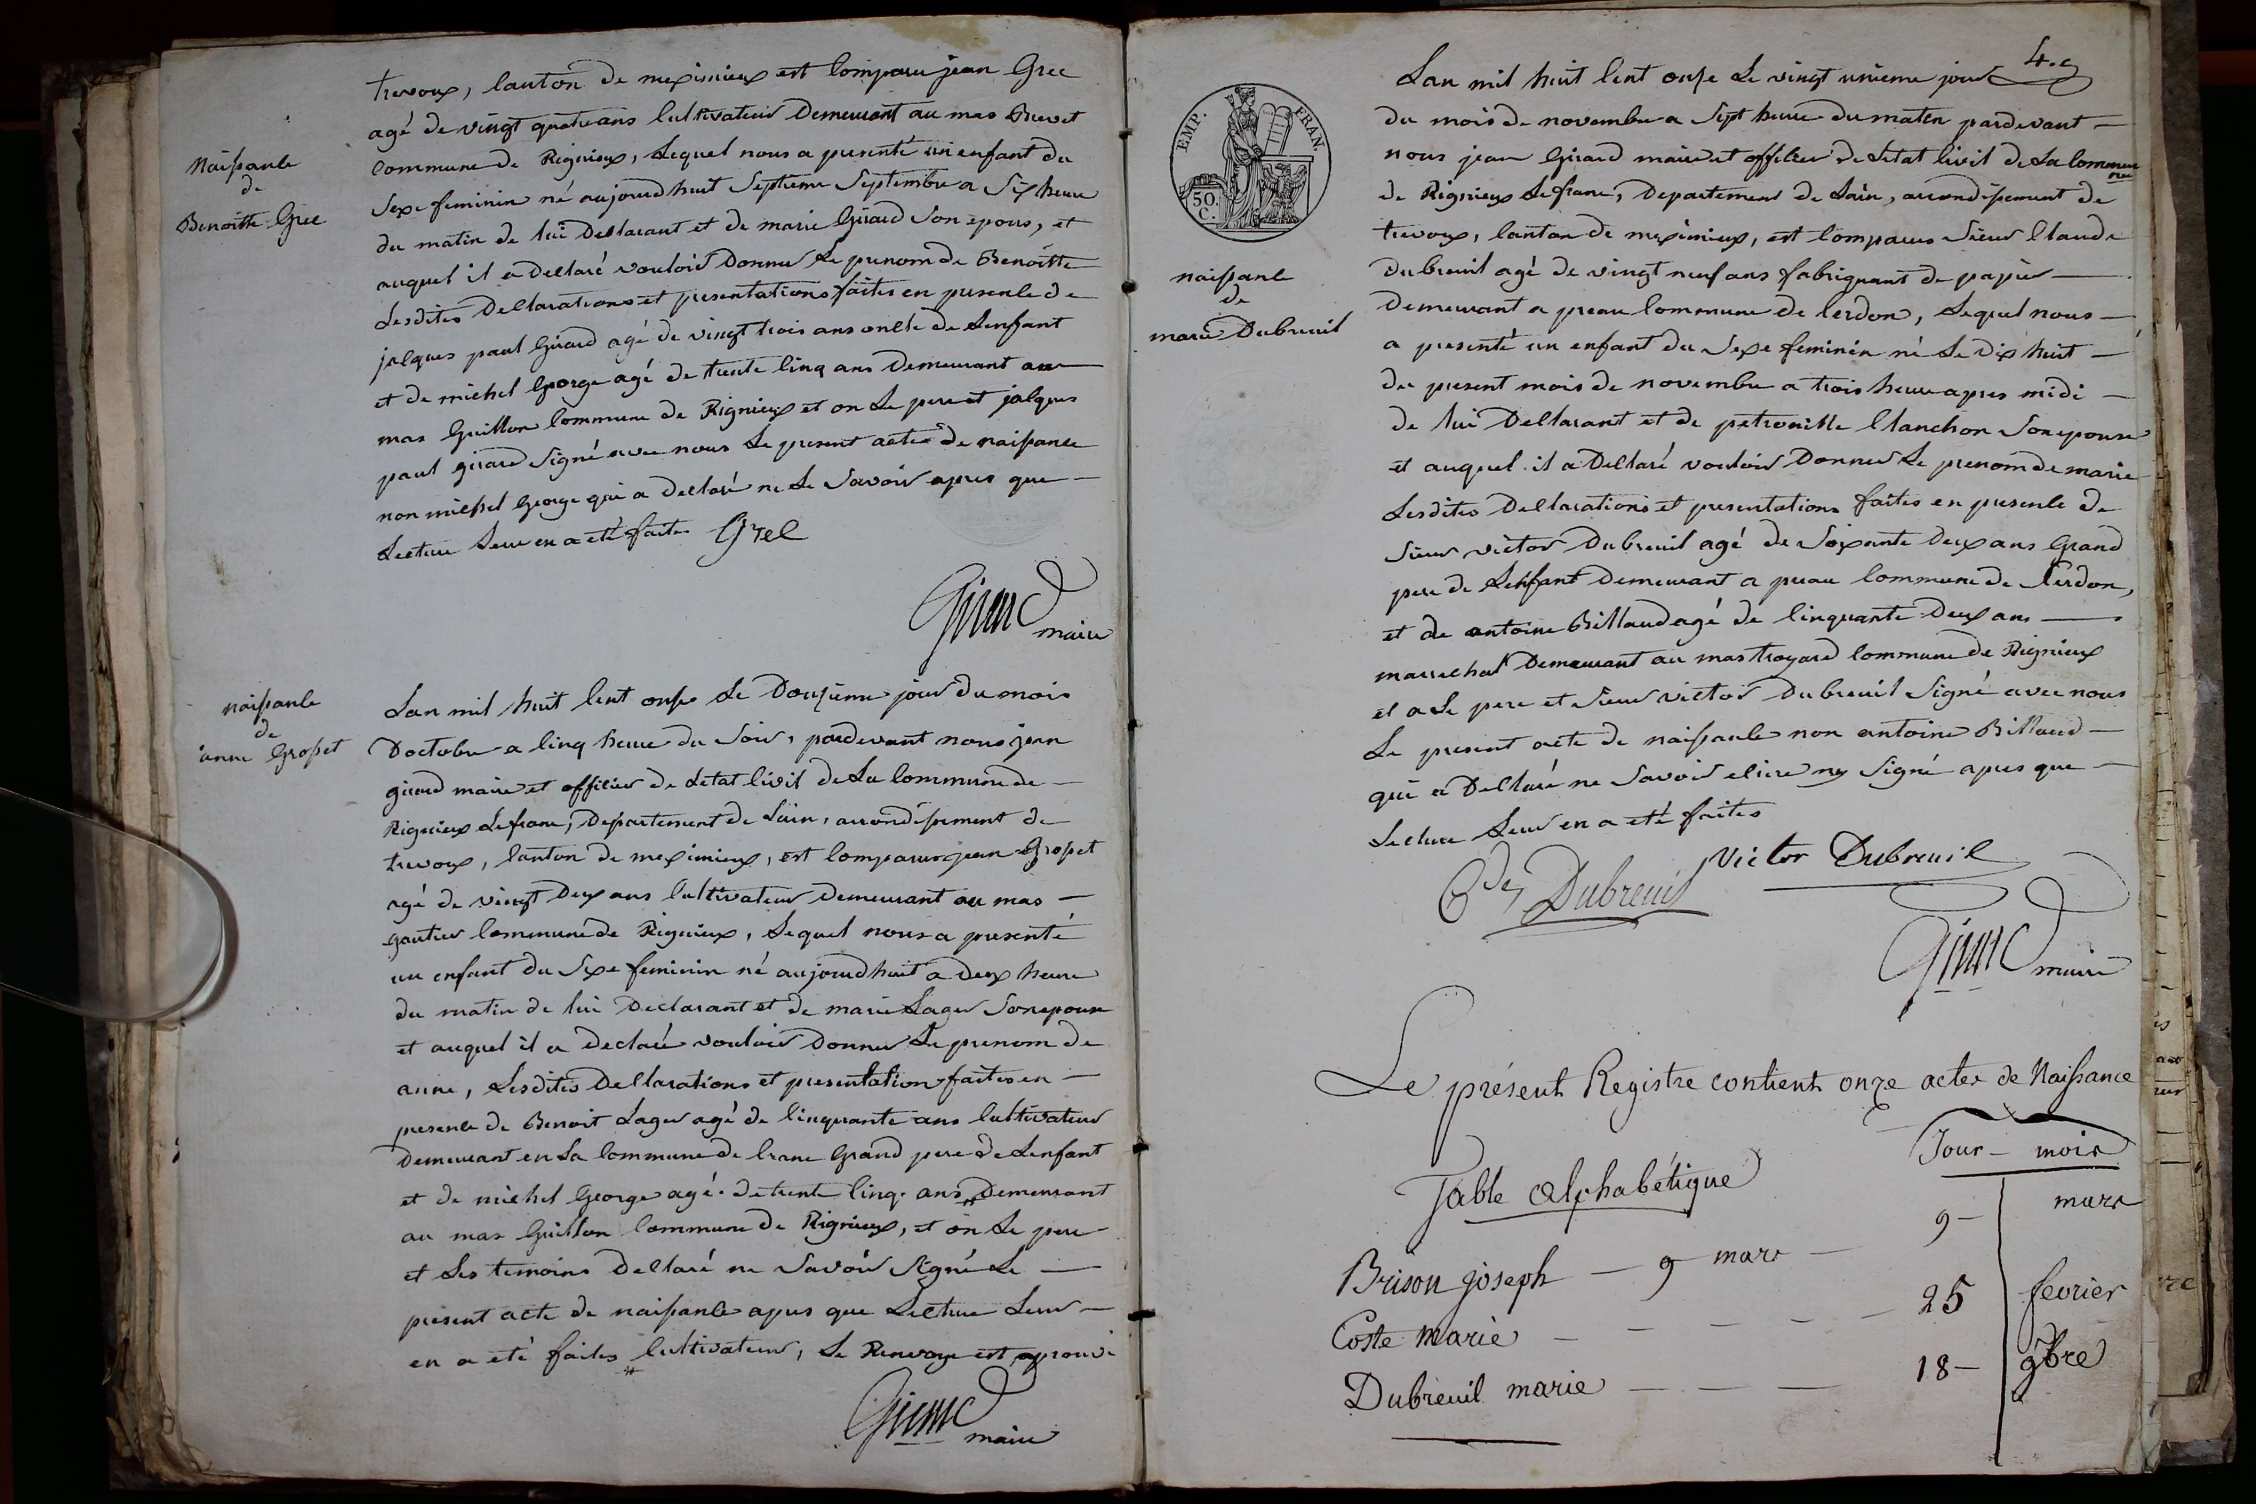 trevoux, Canton de meximieux est Comparu jean Grec
agé de vingt quatre ans Cultivateur Demeurant au mas Brevet
Commune de Rignieux, Lequel nous a presenté un enfant du
Sexe feminin né aujourdhuit Septieme Septembre a Six heure
du matin de lui Declarant et de marie Girard Son epous, et
auquel il a Declaré vouloir Donner Le prenom de Benoitte
Lesdites Declarations et presentations faites en presence de
jacques paul Girard agé de vingt trois ans oncle de Lenfant
et de michel George agé de trente Cinq ans Demeurant au
mas Guillon Commune de Rignieux et on Le pere et jacques
paul girard Signé avec nous Le present acte de naissance
non michel George qui a declaré ne Le Savoir apres que
Lecture Leur en a eté faites Grec
Girard
maire
Naissance
de
Benoitte Grec
naissance
de
anne Grosset
Lan mil huit Cent onze Le Douzieme jour du mois
Doctobre a Cinq heure du Soir, pardevant nous jean
girard maire et officier de Letat Civil de La Commune de
Rignieux Lefranc, Departement de Lain, arrondissement de
trevoux, Canton de meximieux, est Comparu jean Grosset
agé de vingt Deux ans Cultivateur Demeurant au mas
gautier Commune de Rignieux, Lequel nous a presenté
un enfant du Sexe feminin né aujourdhuit a Deux heure
du matin de lui Declarant et de marie Lager Son epouse
et auquel il a Declaré vouloir Donner Le prenom de
anne, Lesdites Declarations et presentation faites en
presence de Benoit Lager agé de Cinquante ans Cultivateur
Demeurant en La Commune de Crane Grand pere de Lenfant
et de michel George agé de trente Cinq ans * Demeurant
au mas Guillon Commune de Rignieux, et on Le pere
et Les temoins Declaré ne Savoir Signé Le
present acte de naissance apres que Lecture Leur
en a eté faites * Cultivateur, Le Renvoye est aprouvé
Girard
maire
4.e
EMP. FRAN.
50.
C.
naissance
de
marie Dubreuil
Lan mil huit Cent onze Le vingt unieme jour
du mois de novembre a Sept heure du matin pardevant
nous jean Girard maire et officier de Letat Civil de La Commune
de Rignieux Lefranc, Departement de Lain, arrondissement de
trevoux, Canton de meximieux, est Comparus Sieur Claude
Dubreuil agé de vingt neuf ans fabriquant de papier
Demeurant a preau Commune de Cerdon, Lequel nous
a presenté un enfant du Sexe feminin né Le Dix huit
du present mois de novembre a trois heure apres midi
de lui Declarant et de petronille Clanchon Son epouse
et auquel il a Declaré vouloir Donner Le prenom de marie
Lesdites Declarations et presentations faites en presence de
Sieur victor Dubreuil agé de Soixante Deux ans Grand
pere de Lenfant Demeurant a preau Commune de Cerdon,
et de antoine Billaud agé de Cinquante Deux ans
marechal Demeurant au mas troyard Commune de Rignieux
et a Le pere et Sieur victor Dubreuil Signé avec nous
Le present acte de naissance non antoine Billaud
qui a Declaré ne Savoir ecrire ny Signé apres que
Lecture Leur en a eté faites
Victor Dubreuil
Cde Dubreuil
Girard
maire
Le présent Registre contient onze actes de Naissance
Table Alphabétique
Jour - mois
Brison joseph - 9 mars - 9 - mars
Coste Marie - - - - - 25 fevrier
Dubreuil marie - - - 18 - 9bre